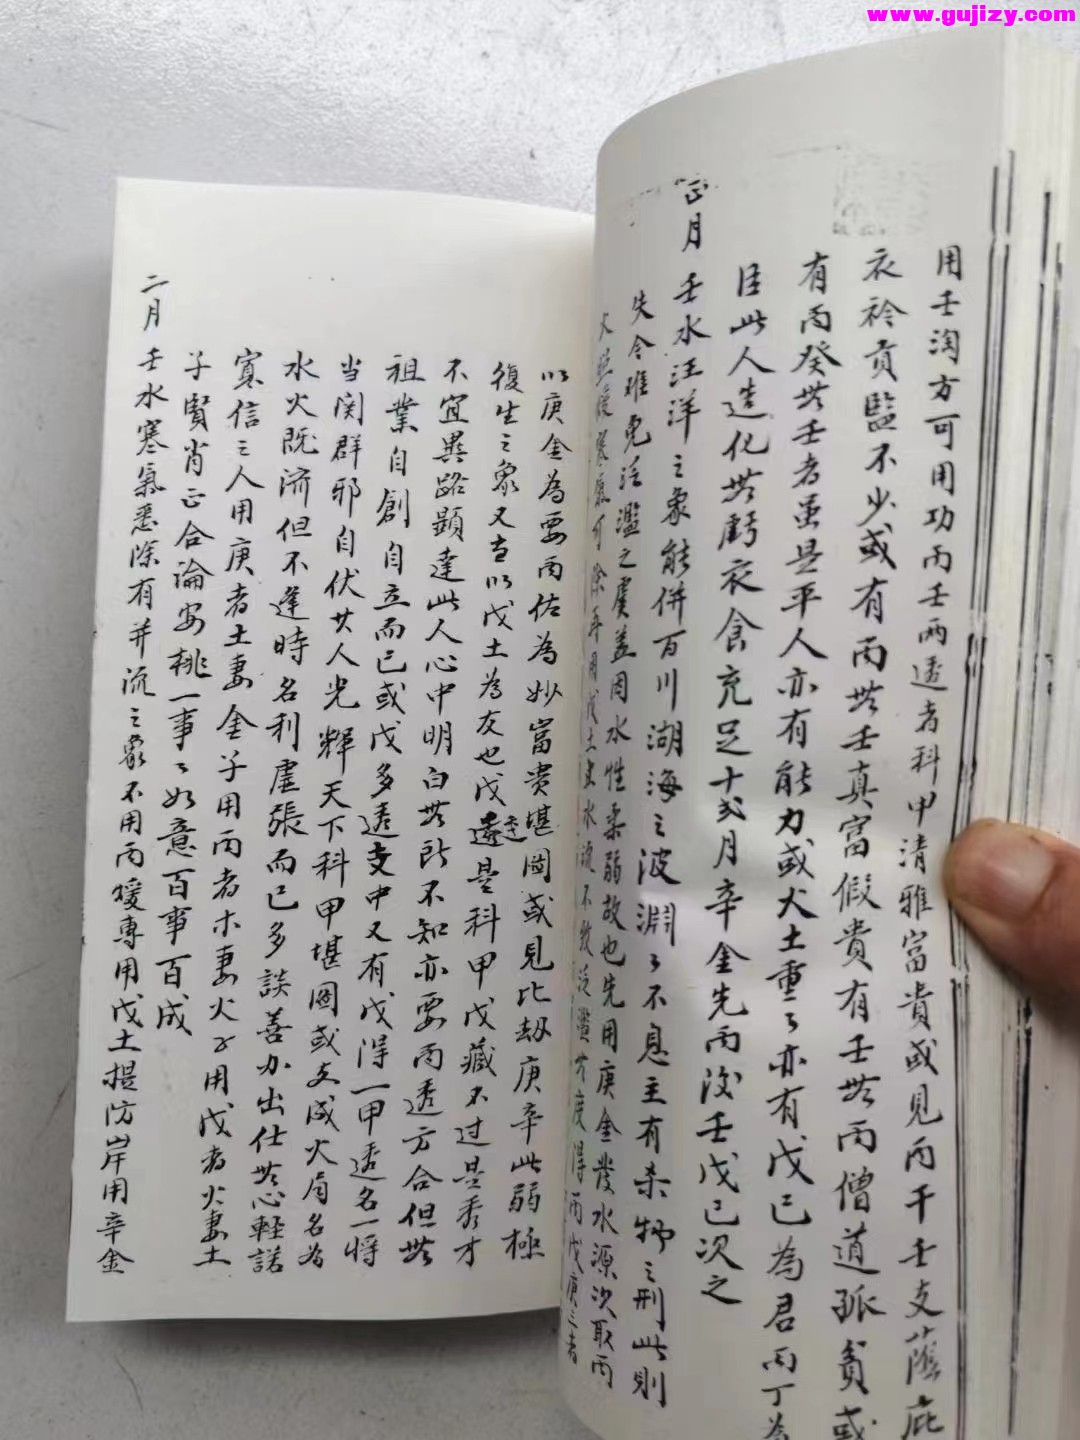 www.gujizy.com
用壬淘方可用功丙壬両透者科甲清雅富貴或見丙干壬支蔭庇
衣衿貢監不少或有丙無壬真富假貴有壬無丙僧道孤貧或
有丙癸無壬者虽是平人亦有能力或火土重々亦有戊己為君丙丁為
臣此人造化無虧衣食充足十弐月辛金先丙次壬戊己次之
正月 壬水汪洋之象能併百川湖海之波淵々不息主有杀物之刑此則
失令难免泛濫之虞盖因水性柔弱故也先用庚金發水源次取丙
火照暖寒氣可除再用戊土出水流不致泛濫得丙戊庚三者
以庚金為要丙佐為妙富贵堪圖或見比刼庚辛此弱極
復生之象又直以戊土為友也戊透是科甲戊藏不过是秀才
不宜異路顕達此人心中明白無所不知亦要丙透方合但無
祖業自創自立而已或戊多透支中又有戊得一甲透名一將
当関群邪自伏其人光輝天下科甲堪圖或支成火局名為
水火既济但不逢時名利虛張而已多談善办出仕無心輕諾
寡信之人用庚者土妻金子用丙者木妻火子用戊者火妻土
子賢肖正合論安桃一事々如意百事百成
二月 壬水寒氣悉除有并流之象不用丙煖專用戊土提防岸用辛金